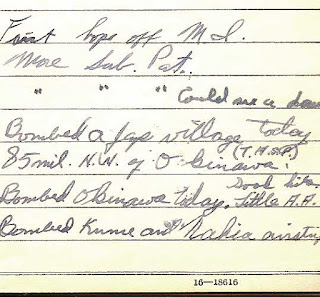 First hops off M I.
More Sub. Pat.
" " " Could see a
Bombed a Jap village today
85 mil. N.W. of Okinawa. (T.A.S.P.)
Good hits.
Bombed Okinawa today. Little A.A.
Bombed Kume and Nahia airstrip
16—18616